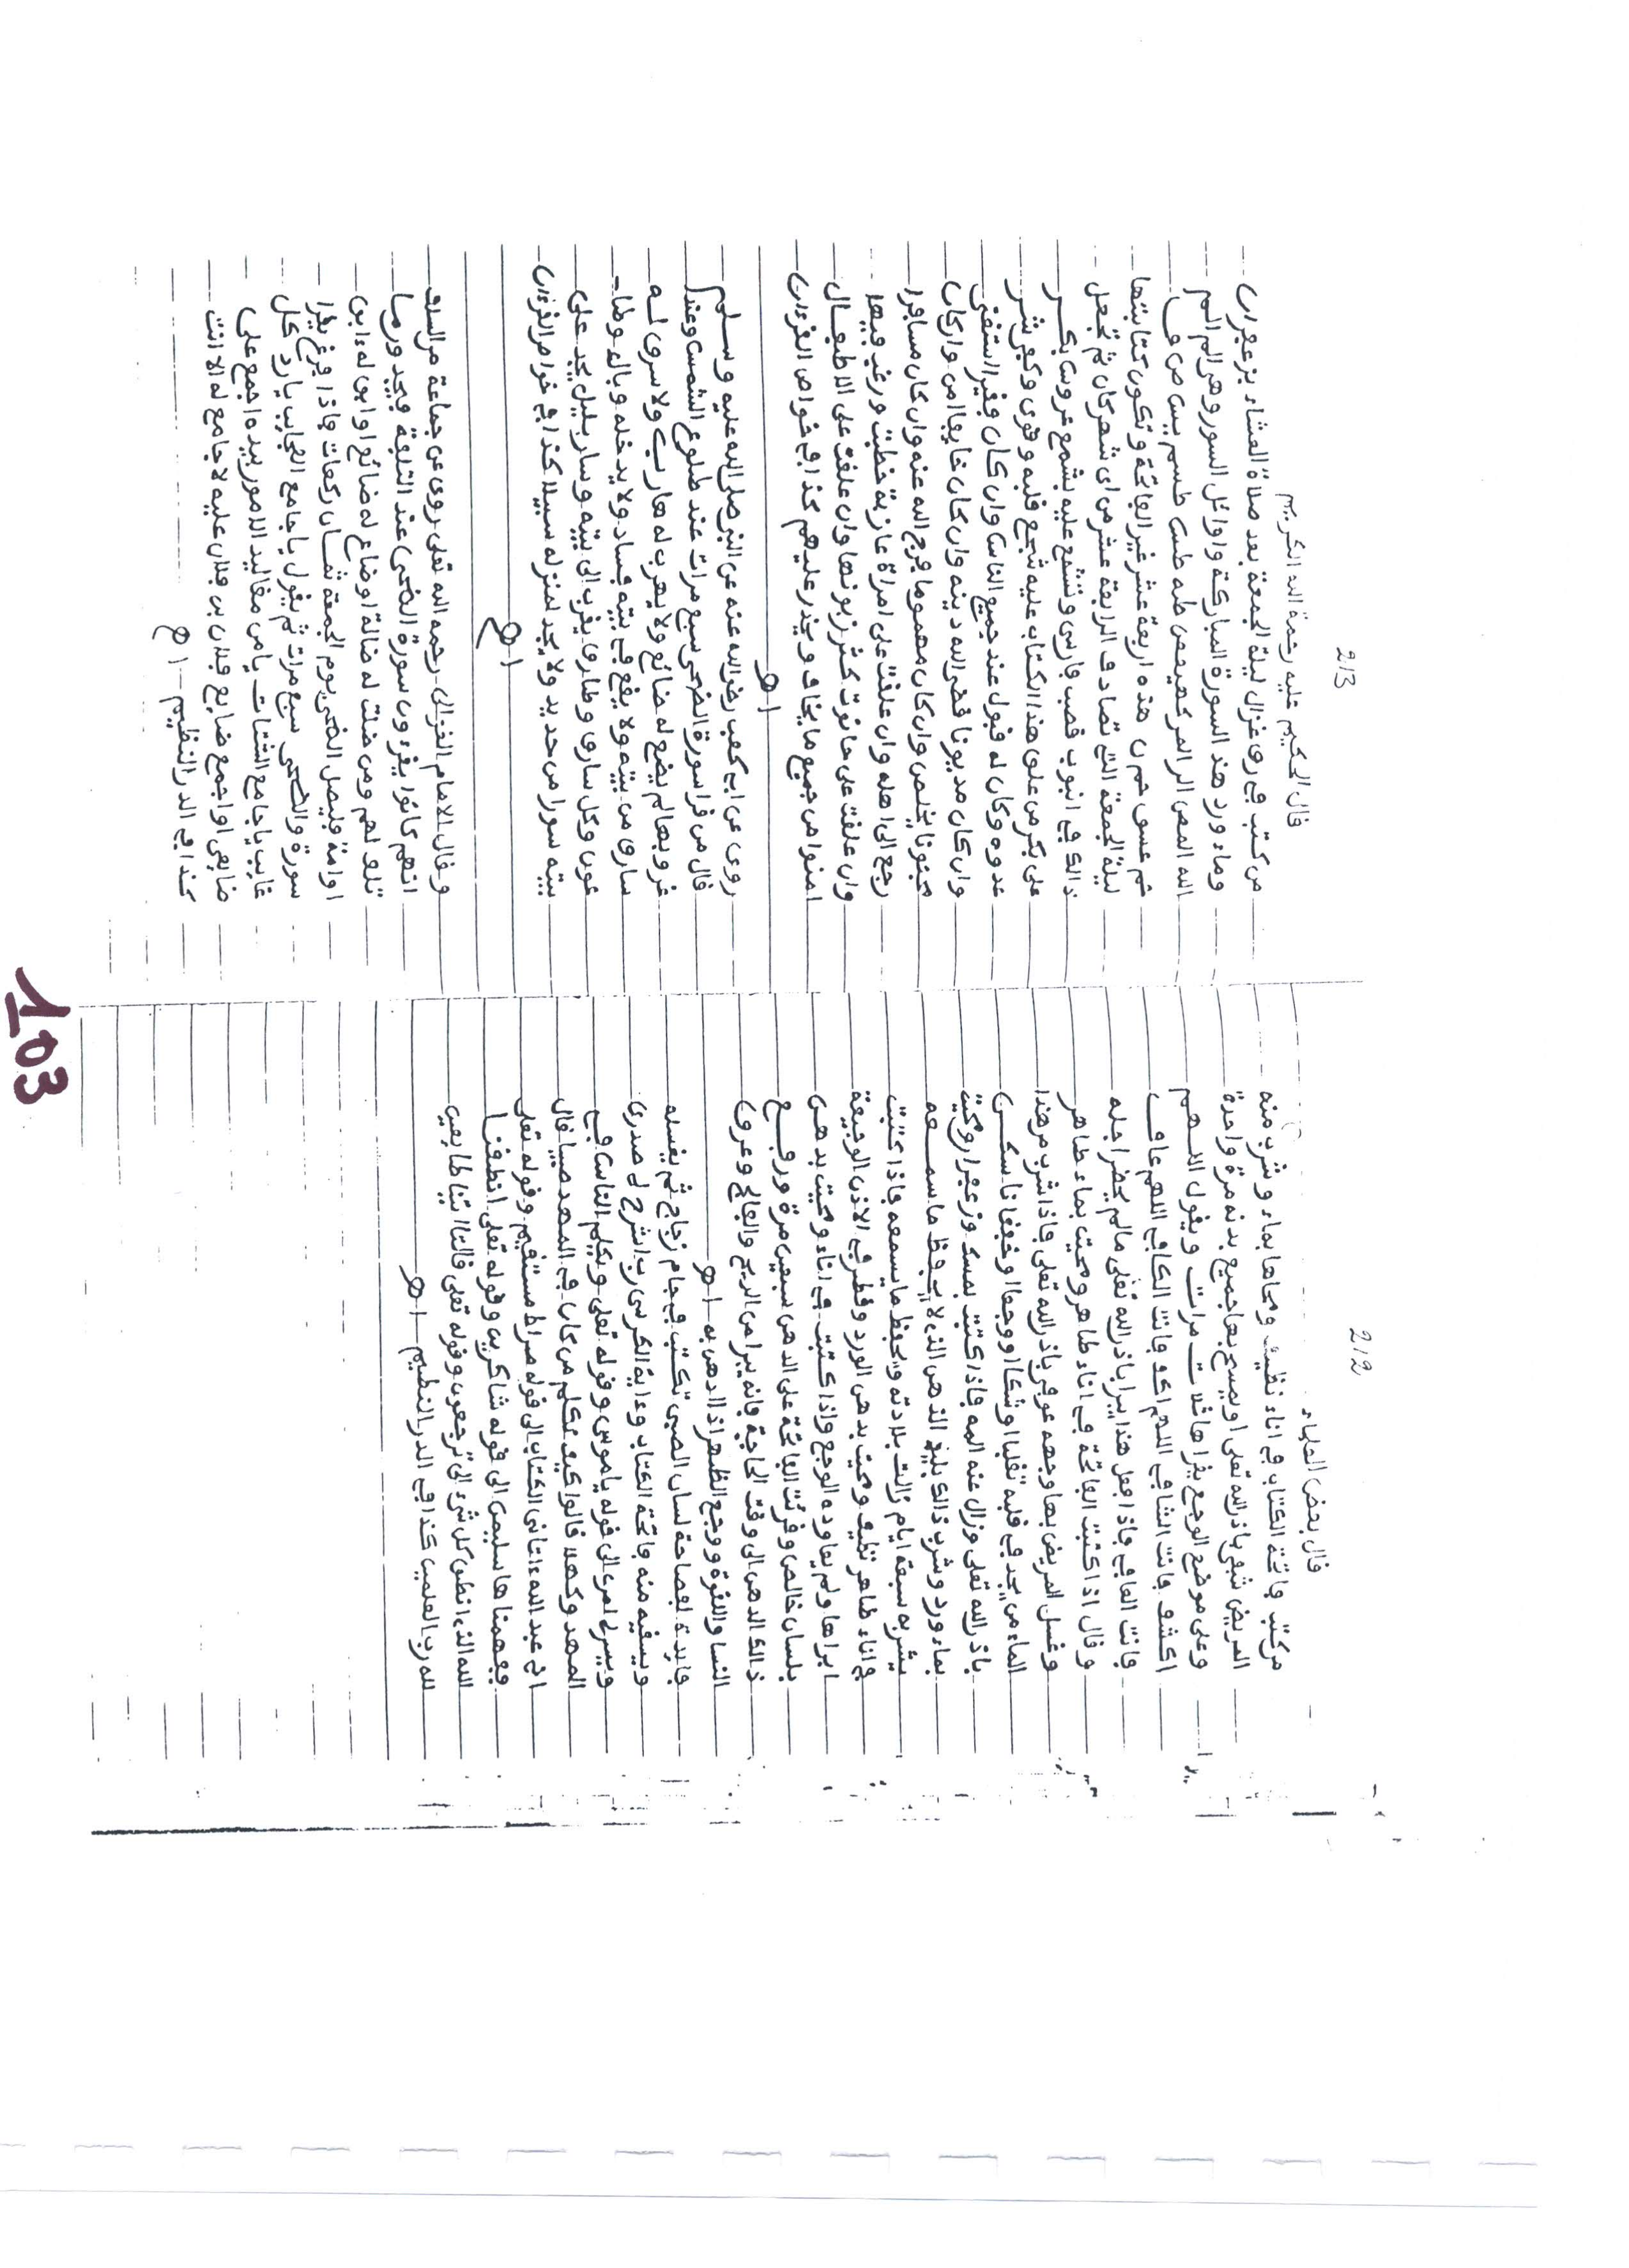 212
قال بعض العلماء
من كتب فاتحة الكتاب في اناء نظيف ومحاها بماء وشرب منه
المريض شفي باذن الله تعلى او يمسح بها جميع بدنه مرة واحدة
وعلى موضع الوجع يقراها ثلاث مرات ويقول اللهم
اكشف فانت الشافي اللهم اكف فانت الكافي اللهم عاف
فانت المعافي فاذا فعل هذا يبرا باذن الله تعلى مالم يحضر اجله
وقال اذا كتبت الفاتحة في اناء طاهر ومحيت بماء طاهر
وغسل المريض بها وجهه عوفي باذن الله تعلى فاذا شرب من هذا
الماء من يجد في قلبه تقلبا او شكا او وجعا او خفقانا سكن
باذن الله تعلى وزال عنه المه فاذا كتبت بمسك وزعفران ومحيت
بماء ورد وشرب ذالك بليد الذهن الذي لا يحفظ ما سمعه
يشربه سبعة ايام زالت بلادته ويحفظ ما يسمعه فاذا كتبت
في اناء طاهر نظيف ومحيت بدهن الورد وقطر في الاذن الوجيعة
ابراها ولم يعاوده الوجع واذا كتبت في اناء ومحيت بدهن
بلسان خالص وقرئت الفاتحة على الدهن سبعين مرة ورفع
ذالك الدهن الى وقت الحاجة فانه يبرا من الريح والفالج وعرق
النسا واللقوة ووجع الظهر اذا ادهن به اهـ
فايدة لفصاحة لسان الصبي تكتب في جام زجاج ثم يغسله
ويسقيه منه فاتحة الكتاب وءاية الكرسي رب اشرح لي صدري
ويسر لي امري الى قوله يا موسى وقوله تعلى ويكلم الناس في
المهد وكهلا قالوا كيف نكلم من كان في المهد صبيا قال
اني عبد الله ءاتاني الكتاب الى قوله صراط مستقيم وقوله تعلى
ففهمناها سليمن الى قوله شاكرين وقوله تعلى انطقنا
الله الذي انطق كل شيء الى ترجعون وقوله تعلى قالتا اتينا طايعين
لله رب العلمين كذا في الدر النظيم اهـ
213
قال الحكيم عليه رحمة الله الكريم
من كتب في رق غزال ليلة الجمعة بعد صلاة العشاء بزعفران
وماء ورد هذه السورة المباركة واوائل السور وهي الم الم
الله المص الر المر كهيعص طه طس طسم يس ص ق
حم عسق حم ن هذه اربعة عشر غير الفاتحة وتكون كتابتها
ليلة الجمعة التي تصادف الرابعة عشر من اي شهر كان ثم تجعل
ذالك في انبوب قصب فارسي وتشمع عليه بشمع عروس بكر
على بكر من علق هذا الكتاب عليه شجع قلبه وقوي وكفي شر
عدوه وكان له قبول عند جميع الناس وان كان فقيرا استغنى
وان كان مديونا قضى الله دينه وان كان خايفا امن وان كان
مجنونا يخلص وان كان مهموما فرج الله عنه وان كان مسافرا
رجع الى اهله وان علقت على امراة عازبة خطبت ورغب فيها
وان علقت على حانوت كثر زبونها وان علقت على الاطفال
امنوا من جميع ما يخاف ويحذر عليهم كذا في خواص القرءان
اهـ
روي عن ابي كعب رضي الله عنه عن النبي صلى الله عليه وسلم
قال من قرا سورة الضحى سبع مرات عند طلوع الشمس وعند
غروبها لم يضع له ضائع ولا يهرب له هارب ولا سرق له
سارق من بيته ولا يقع في بيته فساد ولا يدخله وباء ولا طا
عون وكل سارق وطارق يقرب الى بيته وسار بليل يجد على
بيته سورا من حديد ولا يجد لمنزله سبيلا كذا في خواص القرءان
اهـ
وقال الامام الغزالي رحمه الله تعلى روي عن جماعة من السلف
انهم كانوا يقرءون سورة الضحى عند التلفة فيجدون ما
تلف لهم ومن ضلت له ضالة او ضاع له ضائع او ابق له ءابق
او امة فليصل الضحى يوم الجمعة ثمان ركعات فاذا فرغ يقرا
سورة والضحى سبع مرات ثم يقول يا جامع العجايب يا راد كل
غايب يا جامع الشتات يا من مقاليد الامور بيده اجمع علي
ضايعي او اجمع ضايع فلان بن فلان عليه لا جامع له الا انت
كذا في الدر النظيم اهـ
103